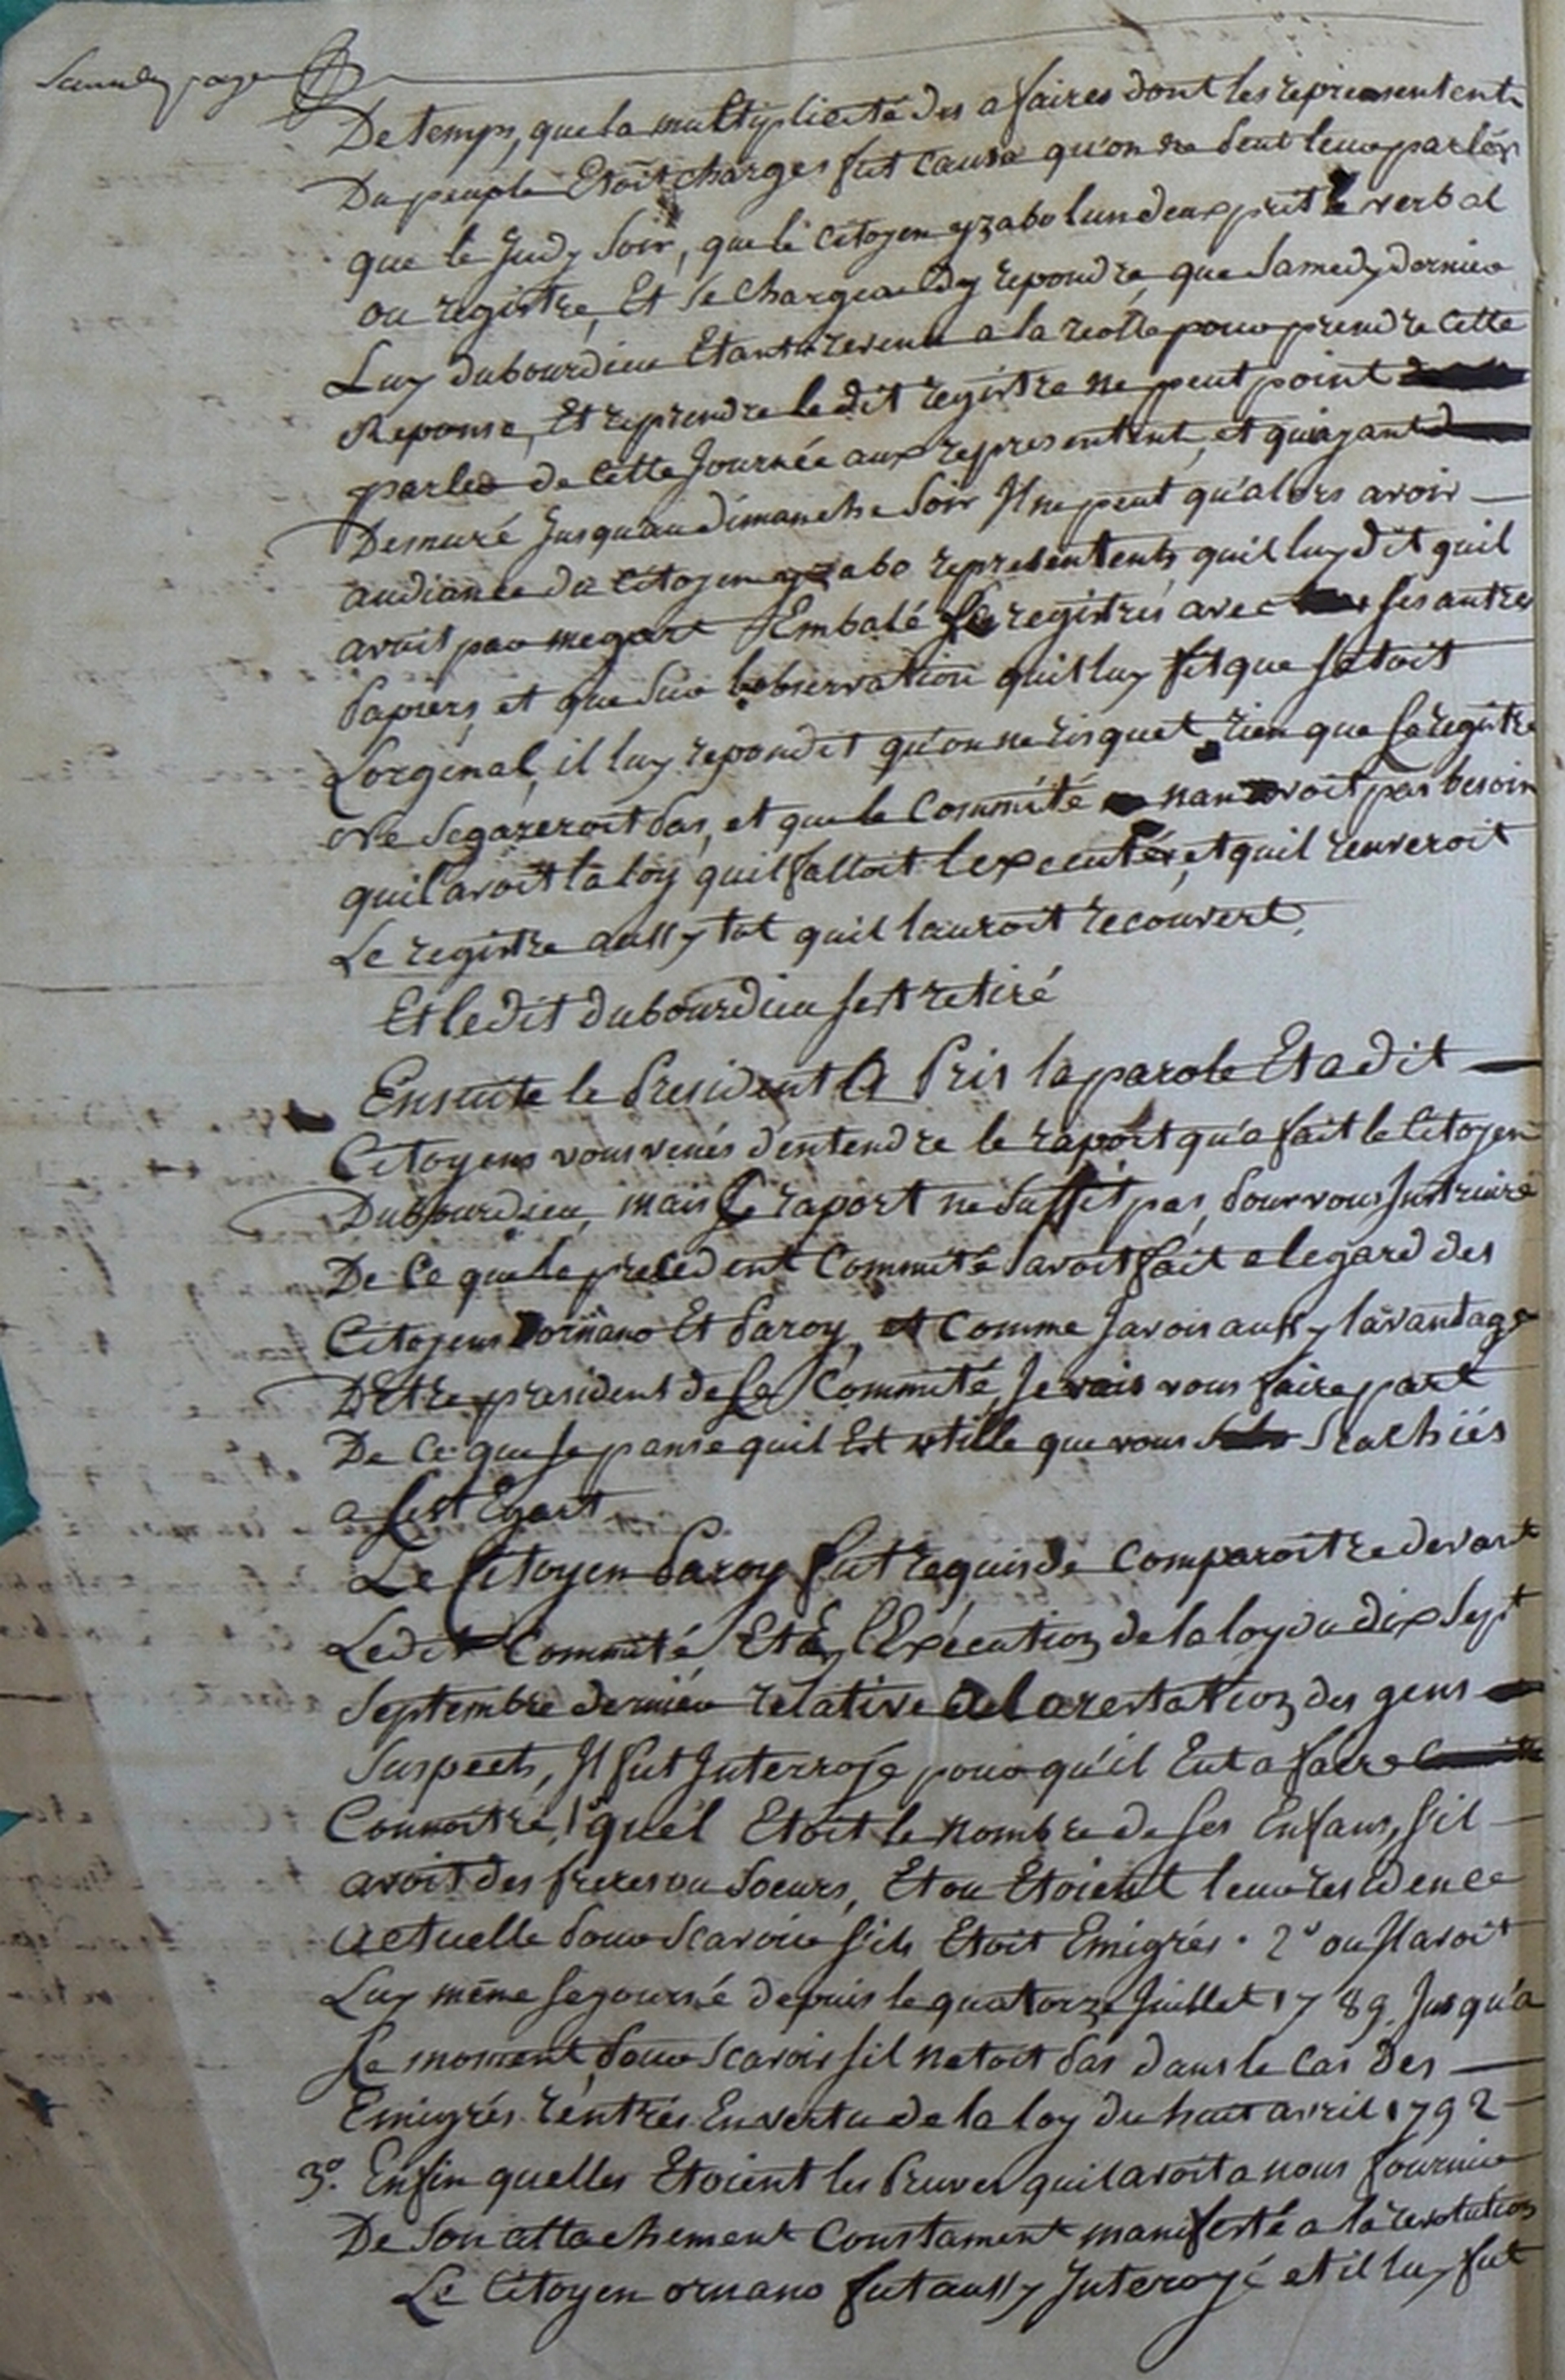 De temps, que la multiplicité des afaires dont les representents
Du peuple Etoit chargés fut cause qu'on ne peut leur parler
que le Judy Soir, que le Citoyen yzabo lun deux prit le verbal
ou registre, Et se chargea dy repondre, que Samedy dernier
Luy dubourdieu Etant revenu a la reolle pour prendre Cette
Reponse, Et reprendre le dit registre ne peut point
parler de Cette Journée aux representent, et qui ayant
Demuré Jusqu'au dimanche Soir Il ne peut qu'alors avoir
audiance du Citoyen yzabo representents quil luy dit quil
avoit par megart Embalé Se registrés avec ses autres
Papiers, et que Sur lobservation quil luy fit que Sétoit
Lorginal, il luy repondit qu'on ne risquet rien que Se registre
Ne Segareroit Pas, et que le Committé nan avoit pas besoin
quil avoit la loy quil falloit lexecuter, et quil renveroit
Le registre aussy tot quil lauroit recouvert.
Et le dit dubourdieu sest retiré
Ensuite le President A Pris la parole Et a dit
Citoyens vous venés dentendre le raport qu'a fait le Citoyen
Dubourdieu, mais Ce raport ne Suffit pas, Pour vous Instruire
De Ce que le precedent Committé avoit fait a legard des
Citoyens Dornano Et Paroy, et Comme Javois aussy lavantage
DEtre president de Ce Committé, Je vais vous faire part
De Ce que Je panse quil Est utille que vous Scachiés
a Cest Egart
Le Citoyen Paroy fut requis de Comparoitre devant
Ledit Committé, Et En lExécution de la loy du dix Sept
Septembre dernier relative a larestation des gens
Suspects, Il fut Interrojé pour qu'il Eut a faire
Connoitre, 1° quel Etoit le nombre de ses Enfans, sil
avoit des freres ou Soeurs, Et ou Etoient leur residence
actuelle Pour Scavoir s'ils Etoit Emigrés. 2° ou Il avoit
Luy même Sejourné depuis le quatorze Juillet 1789. Jusqu'a
Ce moment, Pour Scavoir sil netoit Pas dans le Cas Des
Emigrés rentrés En vertu de la loy du huit avril 1792
3°. Enfin quelles Etoient les Pruves quil avoit a nous fournir
De Son attachement Constament manifesté a la revolution
Le Citoyen ornano fut aussy Interoyé et il luy fut